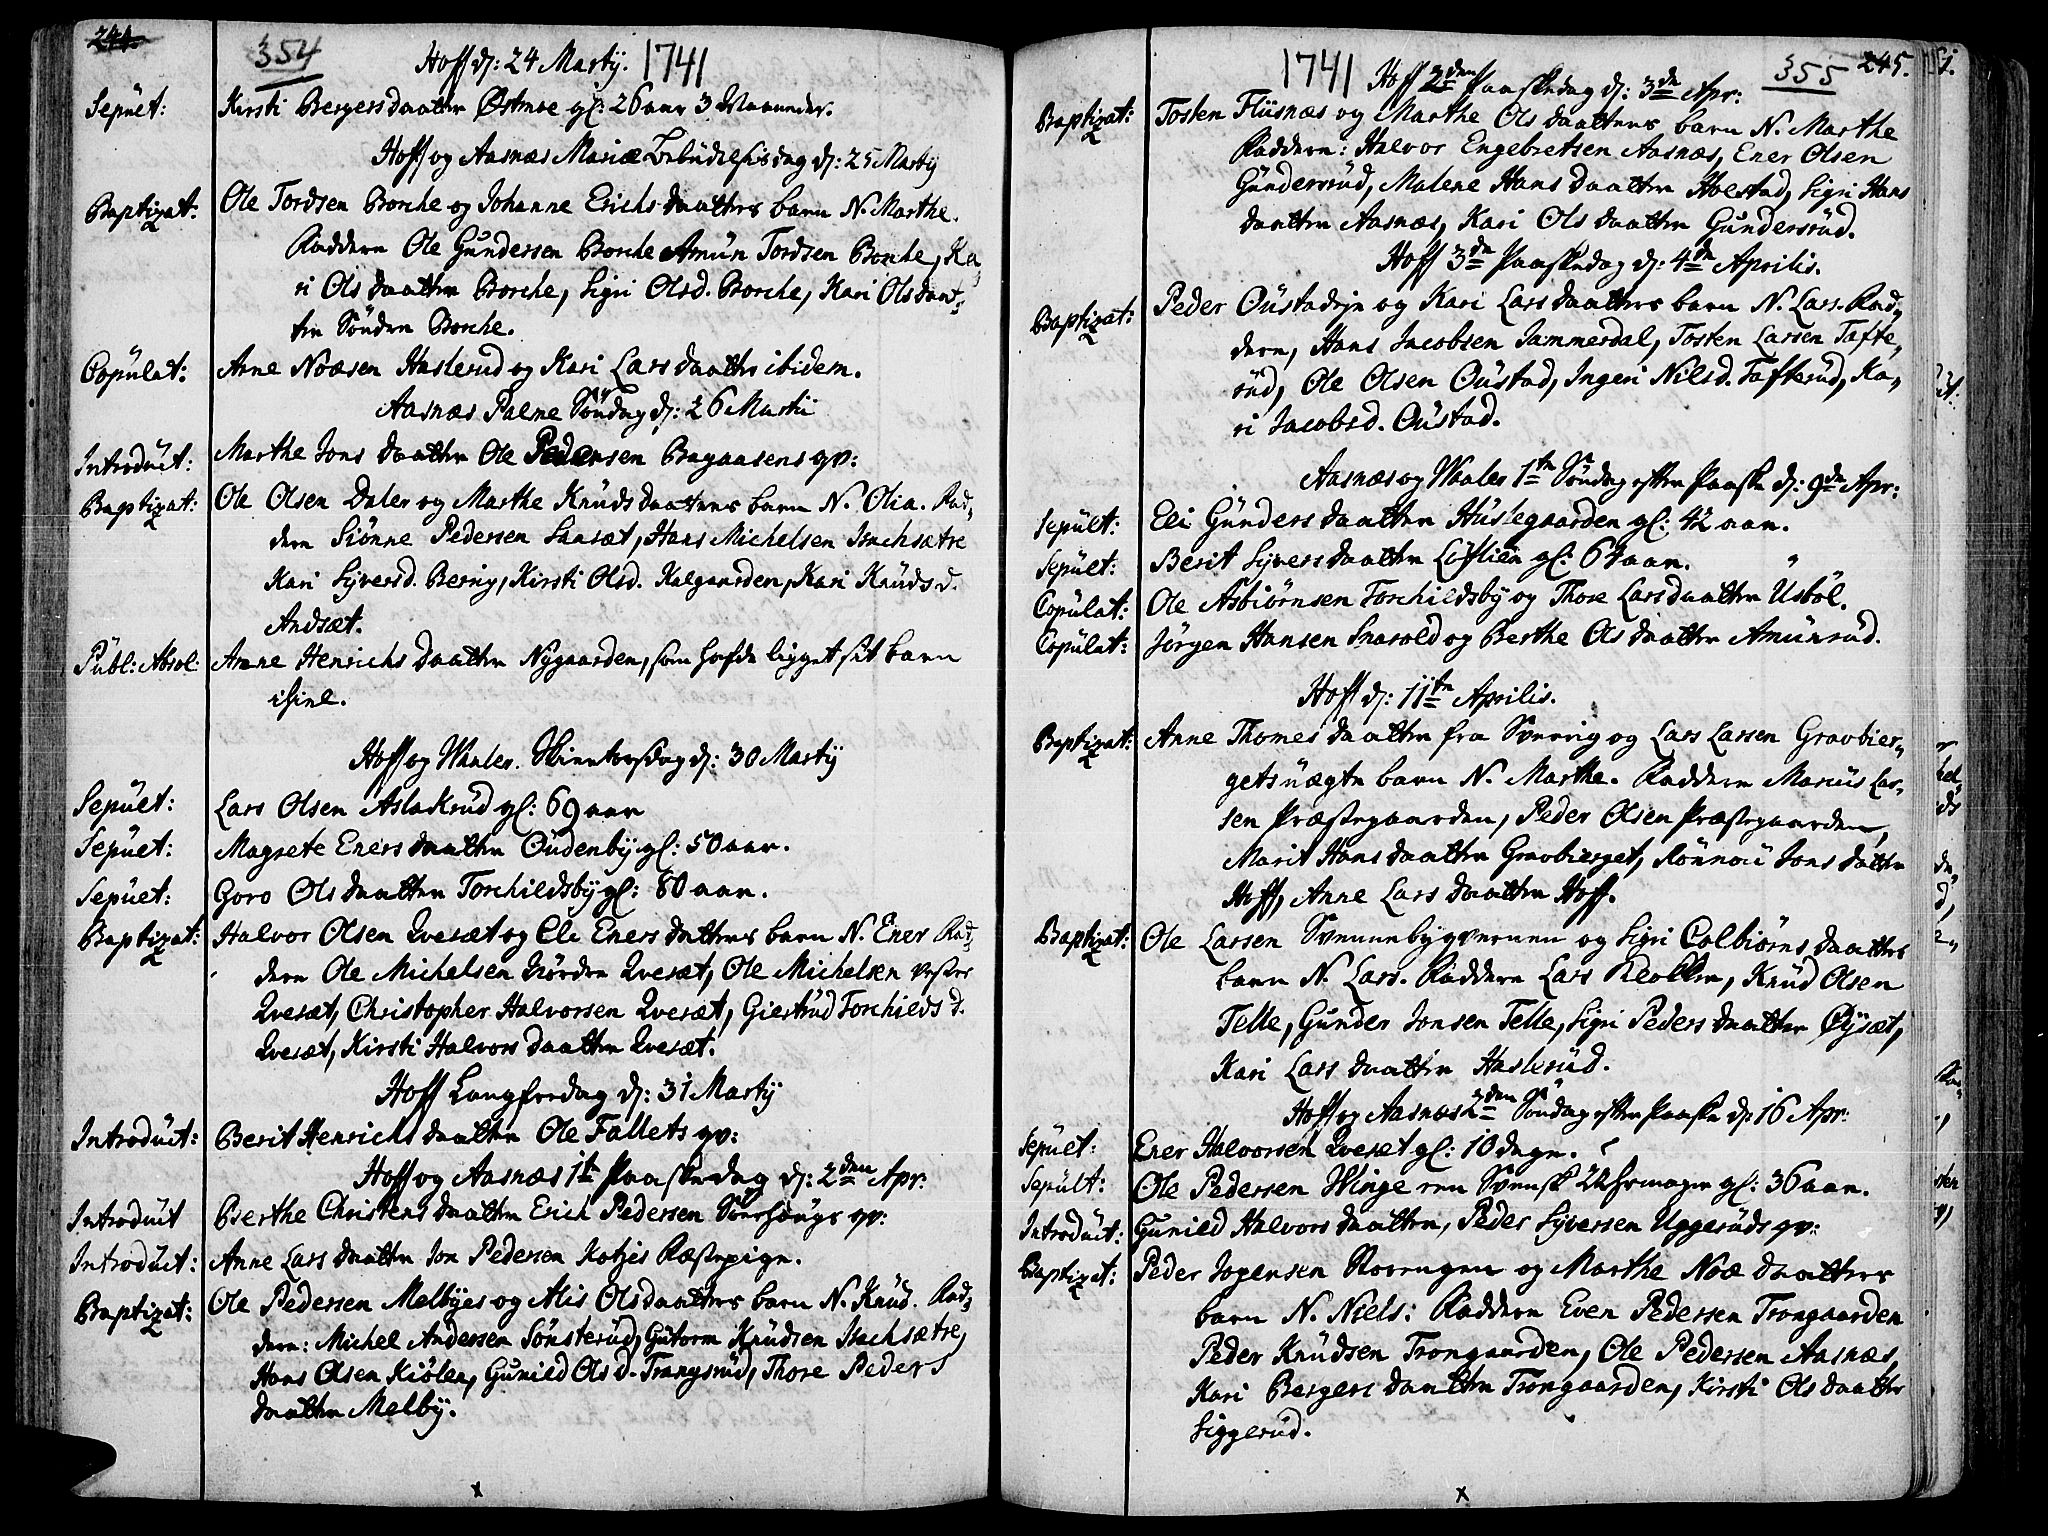 244.
354
Hoff d: 24 Martij. 1741
Sepult: Kirsti Bergersdaatter Østmoe gl: 26 aar 3 Maaneder.
Hoff og Aasnæs Mariæ Bebudelsis dag d: 25 Martij
Baptizat: Ole Tordsen Borche og Johanne Erichsdaatters barn N. Marthe.
Faddere Ole Gundersen Borche Amun Tordsen Borche, Ka,
ri Olsdaatter Borche, Sigri Olsd. Borche, Kari Olsdaat,
ter Søndre Borche.
Copulat: Arne Noæsen Haslerud og Kari Larsdaatter ibidem.
Aasnæs Palme Søndag d: 26 Martii
Introduct: Marthe Jonsdaatter Ole Pedersen Bagaasens qv:
Baptizat: Ole Olsen Daler og Marthe Knudsdaatters barn N. Olia. Fad,
dere Siønne Pedersen Sanset, Hans Michelsen Isachsætre
Kari Syversd. Berig, Kirsti Olsd. Kalgaarden, Kari Knudsd.
Andsæt.
Publ: Absol: Anne Henrichsdaatter Nygaarden, som hafde ligget sit barn
ihiel.
Hoff og Waaler. Skiertorsdag d: 30 Martij
Sepult: Lars Olsen Aslakrud gl: 69 aar
Sepult: Magrete Enersdaatter Oudenby gl: 50 aar.
Sepult: Goro Olsdaatter Torchildsby gl: 80 aar.
Baptizat: Halvor Olsen Qvesæt og Eli Enersdatters barn N. Ener Fad,
dere Ole Michelsen Nørdre Qvesæt, Ole Michelsen vestre
Qvesæt, Christopher Halvorsen Qvesæt, Giertrud Torchilds d.
Qvesæt, Kirsti Halvorsdaatter Qvesæt.
Hoff Langfredag d: 31 Martij
Introduct: Berit Henrichsdaatter Ole Fallets qv:
Hoff og Aasnæs 1te Paaskedag d: 2den Apr:
Introduct Berthe Christensdaatter Erich Pedersen Sørhougs qv:
Introduct: Anne Larsdaatter Jon Pedersen Kotjes Fæstepige.
Baptizat: Ole Pedersen Melbyes og Alis Olsdaatters barn N. Knud. Fad,
dere: Michel Andersen Sønsterud, Gutorm Knudsen Isachsætre,
Hans Olsen Kiølen, Gunild Ols d. Trangsrud, Thore Peders
daatter Melby.
x
1741
355
245.
Hoff 2den Paaskedag d: 3de Apr:
Baptizat: Tosten Flisnæs og Marthe Olsdaatters barn N. Marthe
Faddere: Halvor Engebretsen Aasnæs, Ener Olsen
Gundersrud, Malene Hansdaatter Holstad, Sigri Hans
daatter Aasnæs, Kari Olsdaatter Gundersrud.
Hoff 3de Paaskedag d: 4de Aprilis.
Baptizat: Peder Oustadeje og Kari Larsdaatters barn N. Lars. Fad,
dere, Hans Jacobsen Jammerdal, Tosten Larsen Tafte,
rud, Ole Olsen Oustad, Ingeri Nilsd. Tafterud, Ka,
ri Jacobsd. Oustad.
Aasnæs og Waaler 1te Søndag efter Paaske d: 9de Apr:
Sepult: Eli Gundersdaatter Huslegaarden gl: 42 aar.
Sepult: Berit Syversdaatter Løflien gl: 64 aar.
Copulat: Ole Asbiørnsen Torchildsby og Thore Larsdaatter Usbøl.
Copulat: Jørgen Hansen Snarold og Berthe Olsdaatter Amunrud.
Hoff d: 11te Aprilis.
Baptizat: Anne Thomesdaatter fra Sverrig og Lars Larsen Gravbier,
gets uægte barn N. Marthe. Faddere Marius Lar,
sen Præstegaarden, Peder Olsen Præstegaarden,
Marit Hansdaatter Gravbierget, Rønnou Jonsdatter
Hoff, Anne Larsdaatter Hoff.
Baptizat: Ole Larsen Svennebyqvernen og Sigri Colbiørnsdaatters
barn N. Lars. Faddere Lars Klokker, Knud Olsen
Telle, Gunder Jonsen Telle, Sigri Pedersdaatter Øysæt,
Kari Larsdaatter Haslerud.
Hoff og Aasnæs 2den Søndag efter Paaske d: 16 Apr:
Sepult: Ener Halvorsen Qvesæt gl: 10 dage.
Sepult: Ole Pedersen Winge en Svensk Uhrmager gl: 36 aar.
Introduct: Gunild Halvorsdaatter, Peder Syversen Uggeruds qv:
Baptizat: Peder Jogensen Rovengen og Marthe Noædaatters
barn N. Niels: Faddere Even Pedersen Trongaarden
Peder Knudsen Trongaarden, Ole Pedersen Aasnæs,
Kari Bergersdaatter Trongaarden, Kirsti Olsdaatter
Siggerud.
x